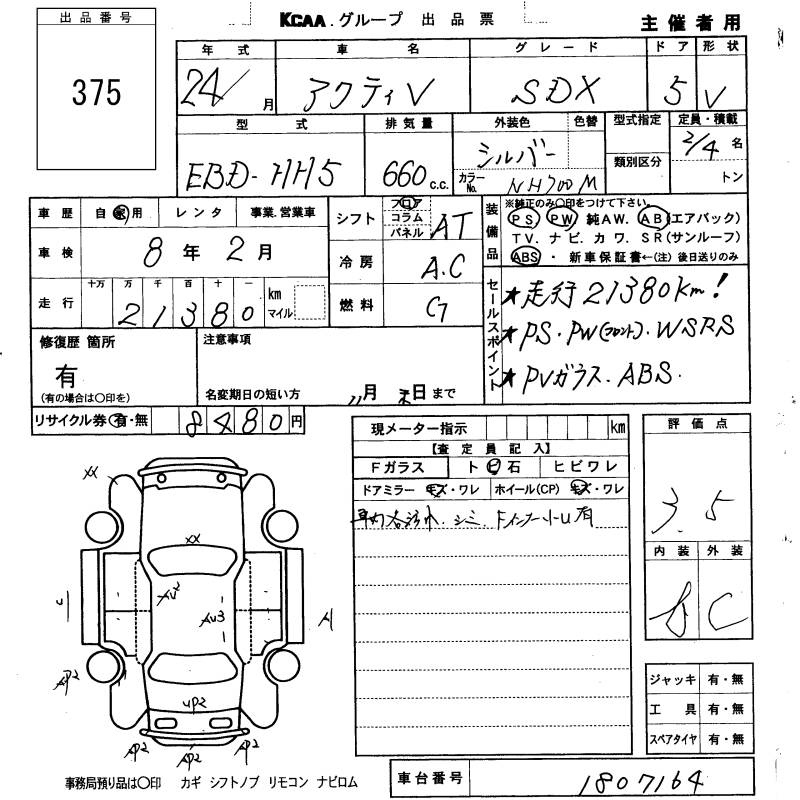 出品番号
375
KCAA.グループ 出品票
主催者用
年式 車名 グレード ドア 形状
24/ 月 アクティV SDX 5 V
型式 排気量 外装色 色替 型式指定 定員・積載
EBD-HH5 660 c.c. シルバー 類別区分 2/4 名
カラーNo. NH700M トン
車歴 自家用 レンタ 事業.営業車
車検 8年 2月
走行 十万 万 千 百 十 一 km マイル
2 1 3 8 0
シフト フロア コラム パネル AT
冷房 A.C
燃料 G
装備品
※純正のみ○印をつけて下さい。
PS PW 純AW. AB(エアバック)
TV. ナビ. カワ. SR(サンルーフ)
ABS ・ 新車保証書←(注)後日送りのみ
セールスポイント
★走行21380km!
★PS.PW(フロント).WSRS
★PVガラス.ABS.
修復歴 箇所
有
(有の場合は○印を)
注意事項
名変期日の短い方 11月 末日まで
リサイクル券 有・無 8480円
現メーター指示 km
【査定員記入】
Fガラス ト ビ 石 ヒビワレ
ドアミラー キズ・ワレ ホイール(CP) キズ・ワレ
シミ.
有
評価点
3.5
内装 外装
B C
XX
XX
AU2
AU3
U1
A1
AP2
UP2
AP2
AP2
AP2
ジャッキ 有・無
工具 有・無
スペアタイヤ 有・無
事務局預り品は○印 カギ シフトノブ リモコン ナビロム
車台番号 1807164